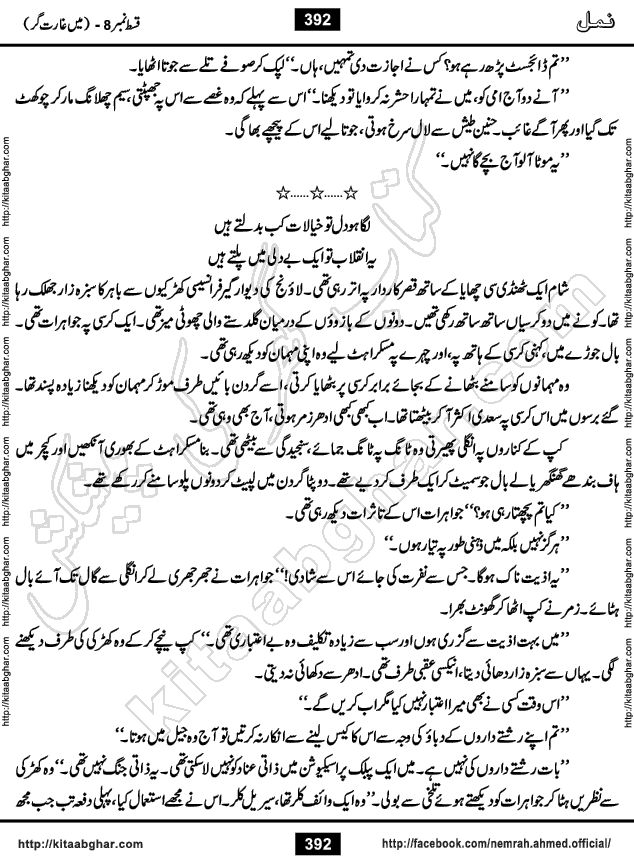 قسط نمبر 8 - (میں غارت گر)
392
نمل
”تم ڈائجسٹ پڑھ رہے ہو؟ کس نے اجازت دی تمہیں، ہاں۔“ لپک کر صوفے تلے سے جوتا اٹھایا۔
”آنے دو آج امی کو، میں نے تمہارا حشر نہ کروایا تو دیکھنا۔“ اس سے پہلے کہ وہ غصے سے اس پہ جھپٹتی، سیم چھلانگ مار کر چوکھٹ
تک گیا اور پھر آگے غائب۔ حنین طیش سے لال سرخ ہوتی، جوتا لیے اس کے پیچھے بھاگی۔
”یہ موٹا آلو آج بچے گا نہیں۔“
☆......☆......☆
لگا ہو دل تو خیالات کب بدلتے ہیں
یہ انقلاب تو ایک بے دلی میں پلتے ہیں
شام ایک ٹھنڈی سی چھایا کے ساتھ قصر کاردار پہ اتر رہی تھی۔ لاؤنج کی دیوار گیر فرانسیسی کھڑکیوں سے باہر کا سبزہ زار جھلک رہا
تھا۔ کونے میں دو کرسیاں ساتھ ساتھ رکھی تھیں۔ دونوں کے بازوؤں کے درمیان گلدستے والی چھوٹی میز تھی۔ ایک کرسی پہ جواہرات تھی۔
بال جوڑے میں، کہنی کرسی کے ہاتھ پہ، اور چہرے پہ مسکراہٹ لیے وہ اپنی مہمان کو دیکھ رہی تھی۔
وہ مہمانوں کو سامنے بٹھانے کے بجائے برابر کرسی پر بٹھایا کرتی، اسے گردن بائیں طرف موڑ کر مہمان کو دیکھنا زیادہ پسند تھا۔
گئے برسوں میں اس کرسی پہ سعدی اکثر آ کر بیٹھتا تھا۔ اب کبھی کبھی ادھر زمر ہوتی، آج بھی وہی تھی۔
کپ کے کناروں پہ انگلی پھیرتی وہ ٹانگ پہ ٹانگ جمائے، سنجیدگی سے بیٹھی تھی۔ بنا مسکراہٹ کے بھوری آنکھیں اور کیچر میں
ہاف بندھے گھنگھریالے بال جو سمیٹ کر ایک طرف کر دیے تھے۔ دوپٹا گردن میں لپیٹ کر دونوں پلو سامنے کر رکھے تھے۔
”کیا تم پچھتا رہی ہو؟“ جواہرات اس کے تاثرات دیکھ رہی تھی۔
”ہرگز نہیں بلکہ میں ذہنی طور پہ تیار ہوں۔“
”یہ اذیت ناک ہوگا۔ جس سے نفرت کی جائے اس سے شادی!“ جواہرات نے جھرجھری لے کر انگلی سے گال تک آئے بال
ہٹائے۔ زمر نے کپ اٹھا کر گھونٹ بھرا۔
”میں بہت اذیت سے گزری ہوں اور سب سے زیادہ تکلیف وہ بے اعتباری تھی۔“ کپ نیچے کر کے وہ کھڑکی کی طرف دیکھنے
لگی۔ یہاں سے سبزہ زار دکھائی دیتا، انیکسی عقبی طرف تھی۔ ادھر سے دکھائی نہ دیتی۔
”اس وقت کسی نے بھی میرا اعتبار نہیں کیا مگر اب کریں گے۔“
”تم اپنے رشتے داروں کے دباؤ کی وجہ سے اس کا کیس لینے سے انکار نہ کرتیں تو آج وہ جیل میں ہوتا۔“
”بات رشتے داروں کی نہیں ہے۔ میں ایک پبلک پراسیکیوشن میں ذاتی عناد کو نہیں لا سکتی تھی۔ یہ ذاتی جنگ نہیں تھی۔“ وہ کھڑکی
سے نظریں ہٹا کر جواہرات کو دیکھتے ہوئے تلخی سے بولی۔ ”وہ ایک وائف کلر تھا، سیریل کلر۔ اس نے مجھے استعمال کیا، پہلی دفعہ تب جب مجھ
http://kitaabghar.com
392
http://facebook.com/nemrah.ahmed.official/
http://kitaabghar.com
http://kitaabghar.com
http://kitaabghar.com
http://kitaabghar.com
http://kitaabghar.com
http://kitaabghar.com
http://kitaabghar.com
http://kitaabghar.com
http://kitaabghar.com
http://kitaabghar.com
http://kitaabghar.com
http://kitaabghar.com
کتاب گھر کی پیشکش
kitaabghar.com